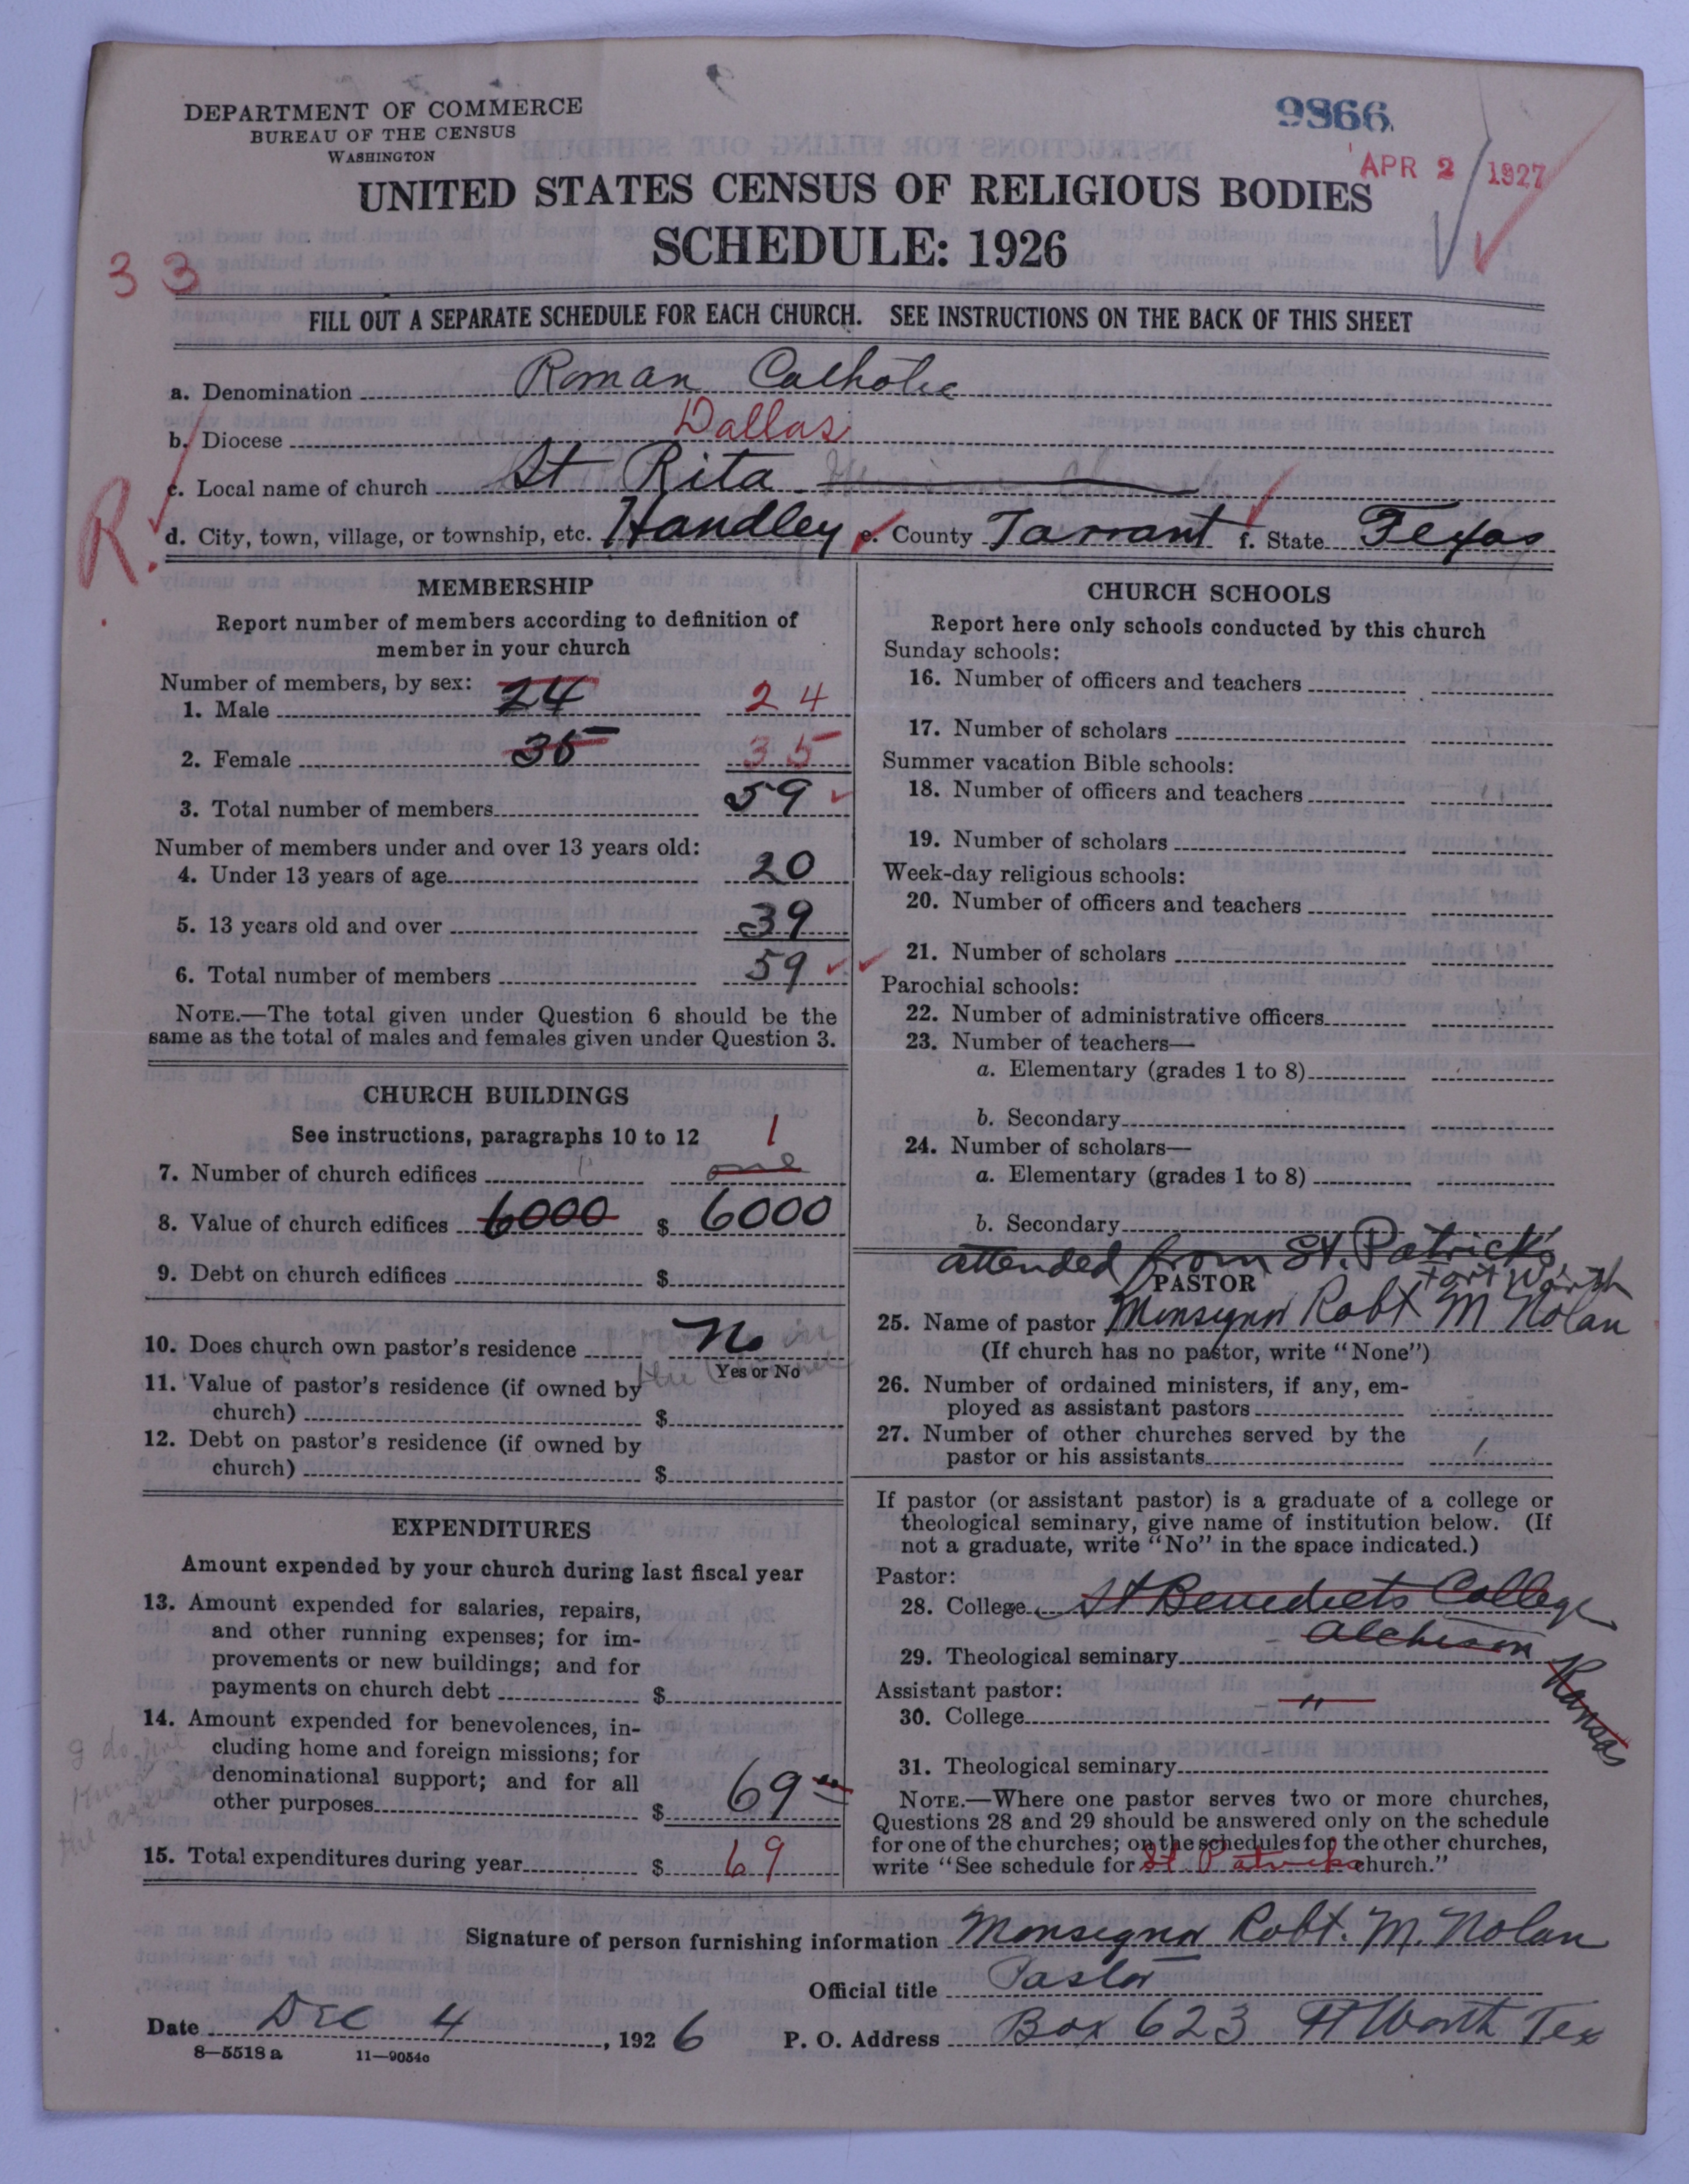 DEPARTMENT OF COMMERCE
BUREAU OF THE CENSUS
WASHINGTON
9866
APR 2 1927
UNITED STATES CENSUS OF RELIGIOUS BODIES
SCHEDULE: 1926
33
FILL OUT A SEPARATE SCHEDULE FOR EACH CHURCH. SEE INSTRUCTIONS ON THE BACK OF THIS SHEET
a. Denomination Roman Catholic
b. Diocese Dallas
c. Local name of church St Rita
R.
d. City, town, village, or township, etc. Handley e. County Tarrant f. State Texas
MEMBERSHIP
Report number of members according to definition of
member in your church
Number of members, by sex:
1. Male 24 24
2. Female 35 35
3. Total number of members 59
Number of members under and over 13 years old:
4. Under 13 years of age 20
5. 13 years old and over 39
6. Total number of members 59
NOTE.—The total given under Question 6 should be the
same as the total of males and females given under Question 3.
CHURCH BUILDINGS
See instructions, paragraphs 10 to 12 1
7. Number of church edifices one
8. Value of church edifices 6000 $ 6000
9. Debt on church edifices $
10. Does church own pastor's residence No
Yes or No
11. Value of pastor's residence (if owned by
church) $
12. Debt on pastor's residence (if owned by
church) $
EXPENDITURES
Amount expended by your church during last fiscal year
13. Amount expended for salaries, repairs,
and other running expenses; for im-
provements or new buildings; and for
payments on church debt $
14. Amount expended for benevolences, in-
cluding home and foreign missions; for
denominational support; and for all
other purposes $ 69
15. Total expenditures during year $ 69
CHURCH SCHOOLS
Report here only schools conducted by this church
Sunday schools:
16. Number of officers and teachers
17. Number of scholars
Summer vacation Bible schools:
18. Number of officers and teachers
19. Number of scholars
Week-day religious schools:
20. Number of officers and teachers
21. Number of scholars
Parochial schools:
22. Number of administrative officers
23. Number of teachers—
a. Elementary (grades 1 to 8)
b. Secondary
24. Number of scholars—
a. Elementary (grades 1 to 8)
b. Secondary
attended from St. Patrick's
Fort Worth
PASTOR
25. Name of pastor Monsignor Robt M Nolan
(If church has no pastor, write "None")
26. Number of ordained ministers, if any, em-
ployed as assistant pastors
27. Number of other churches served by the
pastor or his assistants 1
If pastor (or assistant pastor) is a graduate of a college or
theological seminary, give name of institution below. (If
not a graduate, write "No" in the space indicated.)
Pastor:
28. College St Benedicts College
Atchison
Kansas
29. Theological seminary
Assistant pastor:
30. College "
31. Theological seminary
NOTE.—Where one pastor serves two or more churches,
Questions 28 and 29 should be answered only on the schedule
for one of the churches; on the schedules for the other churches,
write "See schedule for St. Patricks church."
Signature of person furnishing information Monsignor Robt. M. Nolan
Official title Pastor
Date Dec 4, 1926 P. O. Address Box 623 Ft Worth Tex
8—5518a 11—9054c